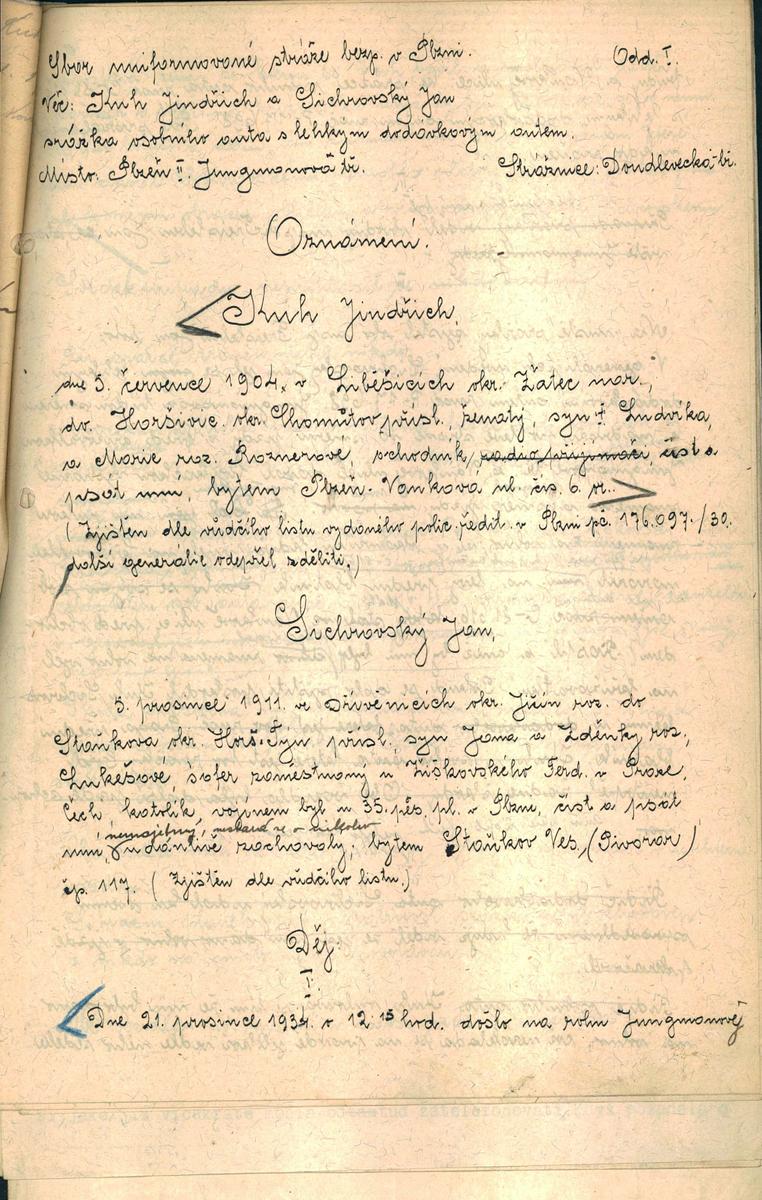 Sbor uniformované stráže bezp. v Plzni. Odd. I.
Věc: Kuh Jindřich a Sichrovský Jan
srážka osobního auta s lehkým dodávkovým autem.
Místo: Plzeň II. Jungmanová tř. Strážnice: Doudlevecká tř.
Oznámení.
Kuh Jindřich,
dne 3. července 1904. v Liběšicích okr. Žatec nar.,
do Horšivic okr. Chomůtov přísl., ženatý, syn † Ludvíka,
a Marie roz. Roznerové, obchodník radiopřijimači, číst a
psát umí, bytem Plzeň - Vaňkova ul. čís. 6.
(Zjištěn dle vůdčího listu vydaného polic. řédit. v Plzni pč. 176.097./30.
další generálie odepřel sděliti.)
Sichrovský Jan,
5. prosince 1911. ve Dřívěnicích okr. Jičín roz. do
Staňkova okr. Horš. Týn přísl., syn Jana a Zděnky, roz.,
Lukešové, šofer zaměstnaný u Žižkovského Ferd. v Praze,
Čech, katolík, vojínem byl u 35. pěš. pl. v Plzni, číst a psát
nemajetný, nestará se o nikoho
umí, údánlivě zachovalý, bytem Staňkov Ves, (Pivovar)
čp. 117. (Zjištěn dle vůdčího listu.)
Děj
I.
Dne 21. prosince 1934. o 12 15 hod. došlo na rohu Jungmanové